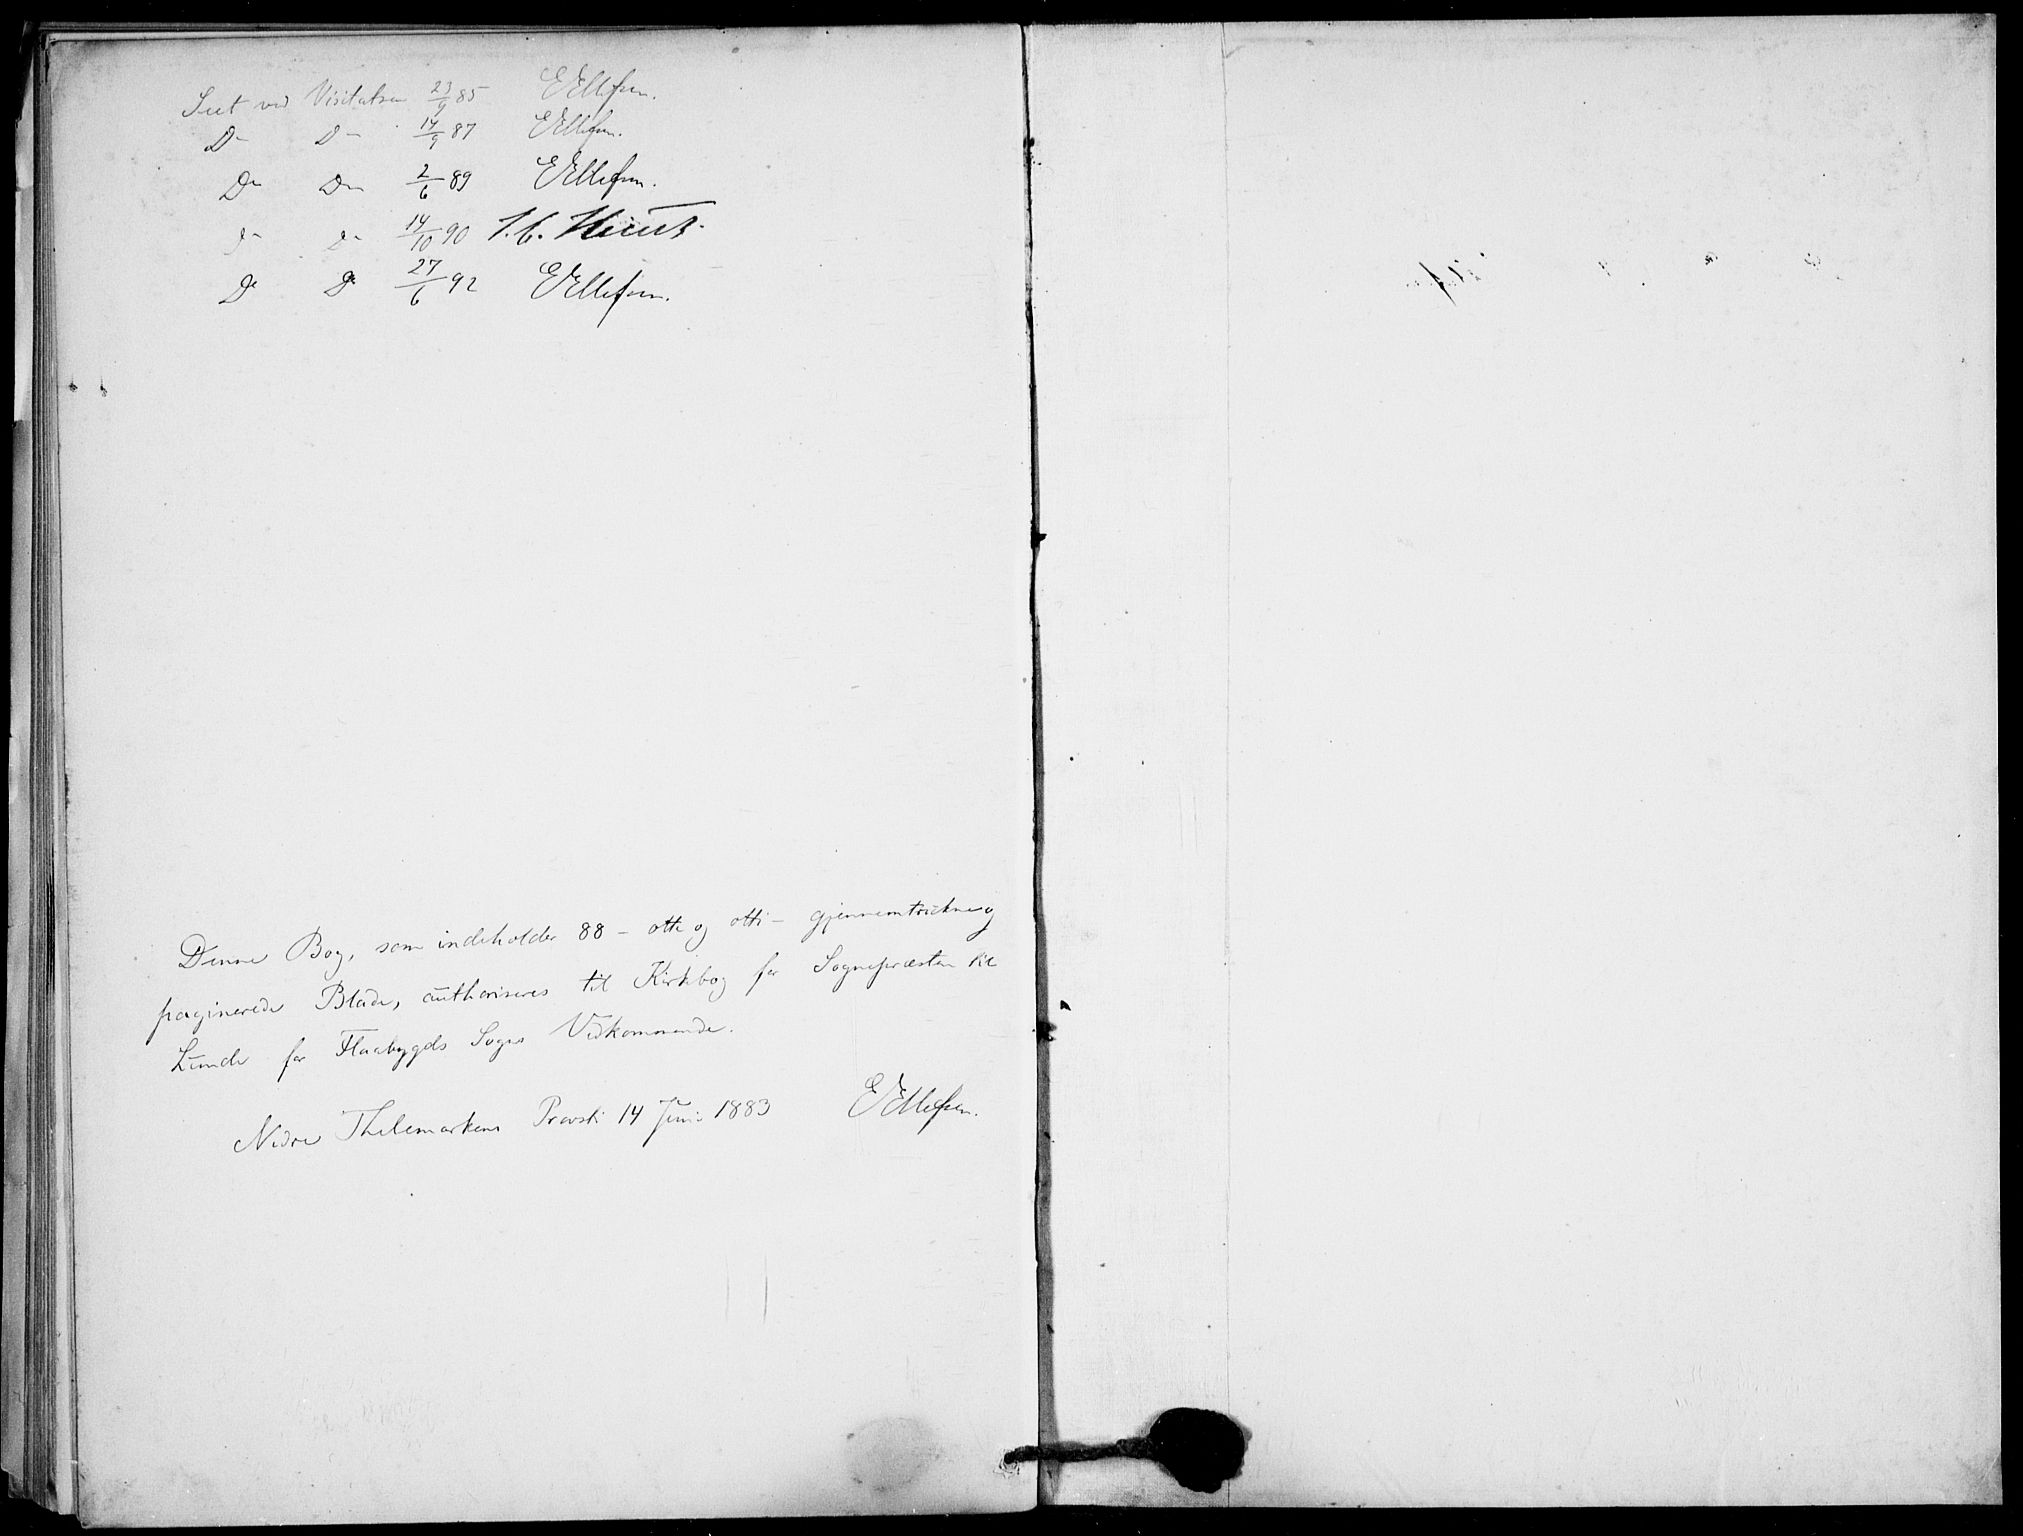 Seet ved Visitatsen 23/9 85 E Ellefsen.
Do Do 14/9 87 E Ellefsen.
Do Do 2/6 89 E Ellefsen.
Do Do 14/10 90 J. C. Heuch.
Do Do 27/6 92 E Ellefsen.
Denne Bog, som indeholder 88 – otte og otti – gjennemtrukne og
paginerede Blade, authoriseres til Kirkebog for Sognepræsten til
Lunde for Flaabygds Sogns Vedkommende.
Nedre Thelemarkens Provsti 14 Juni 1883 E Ellefsen.